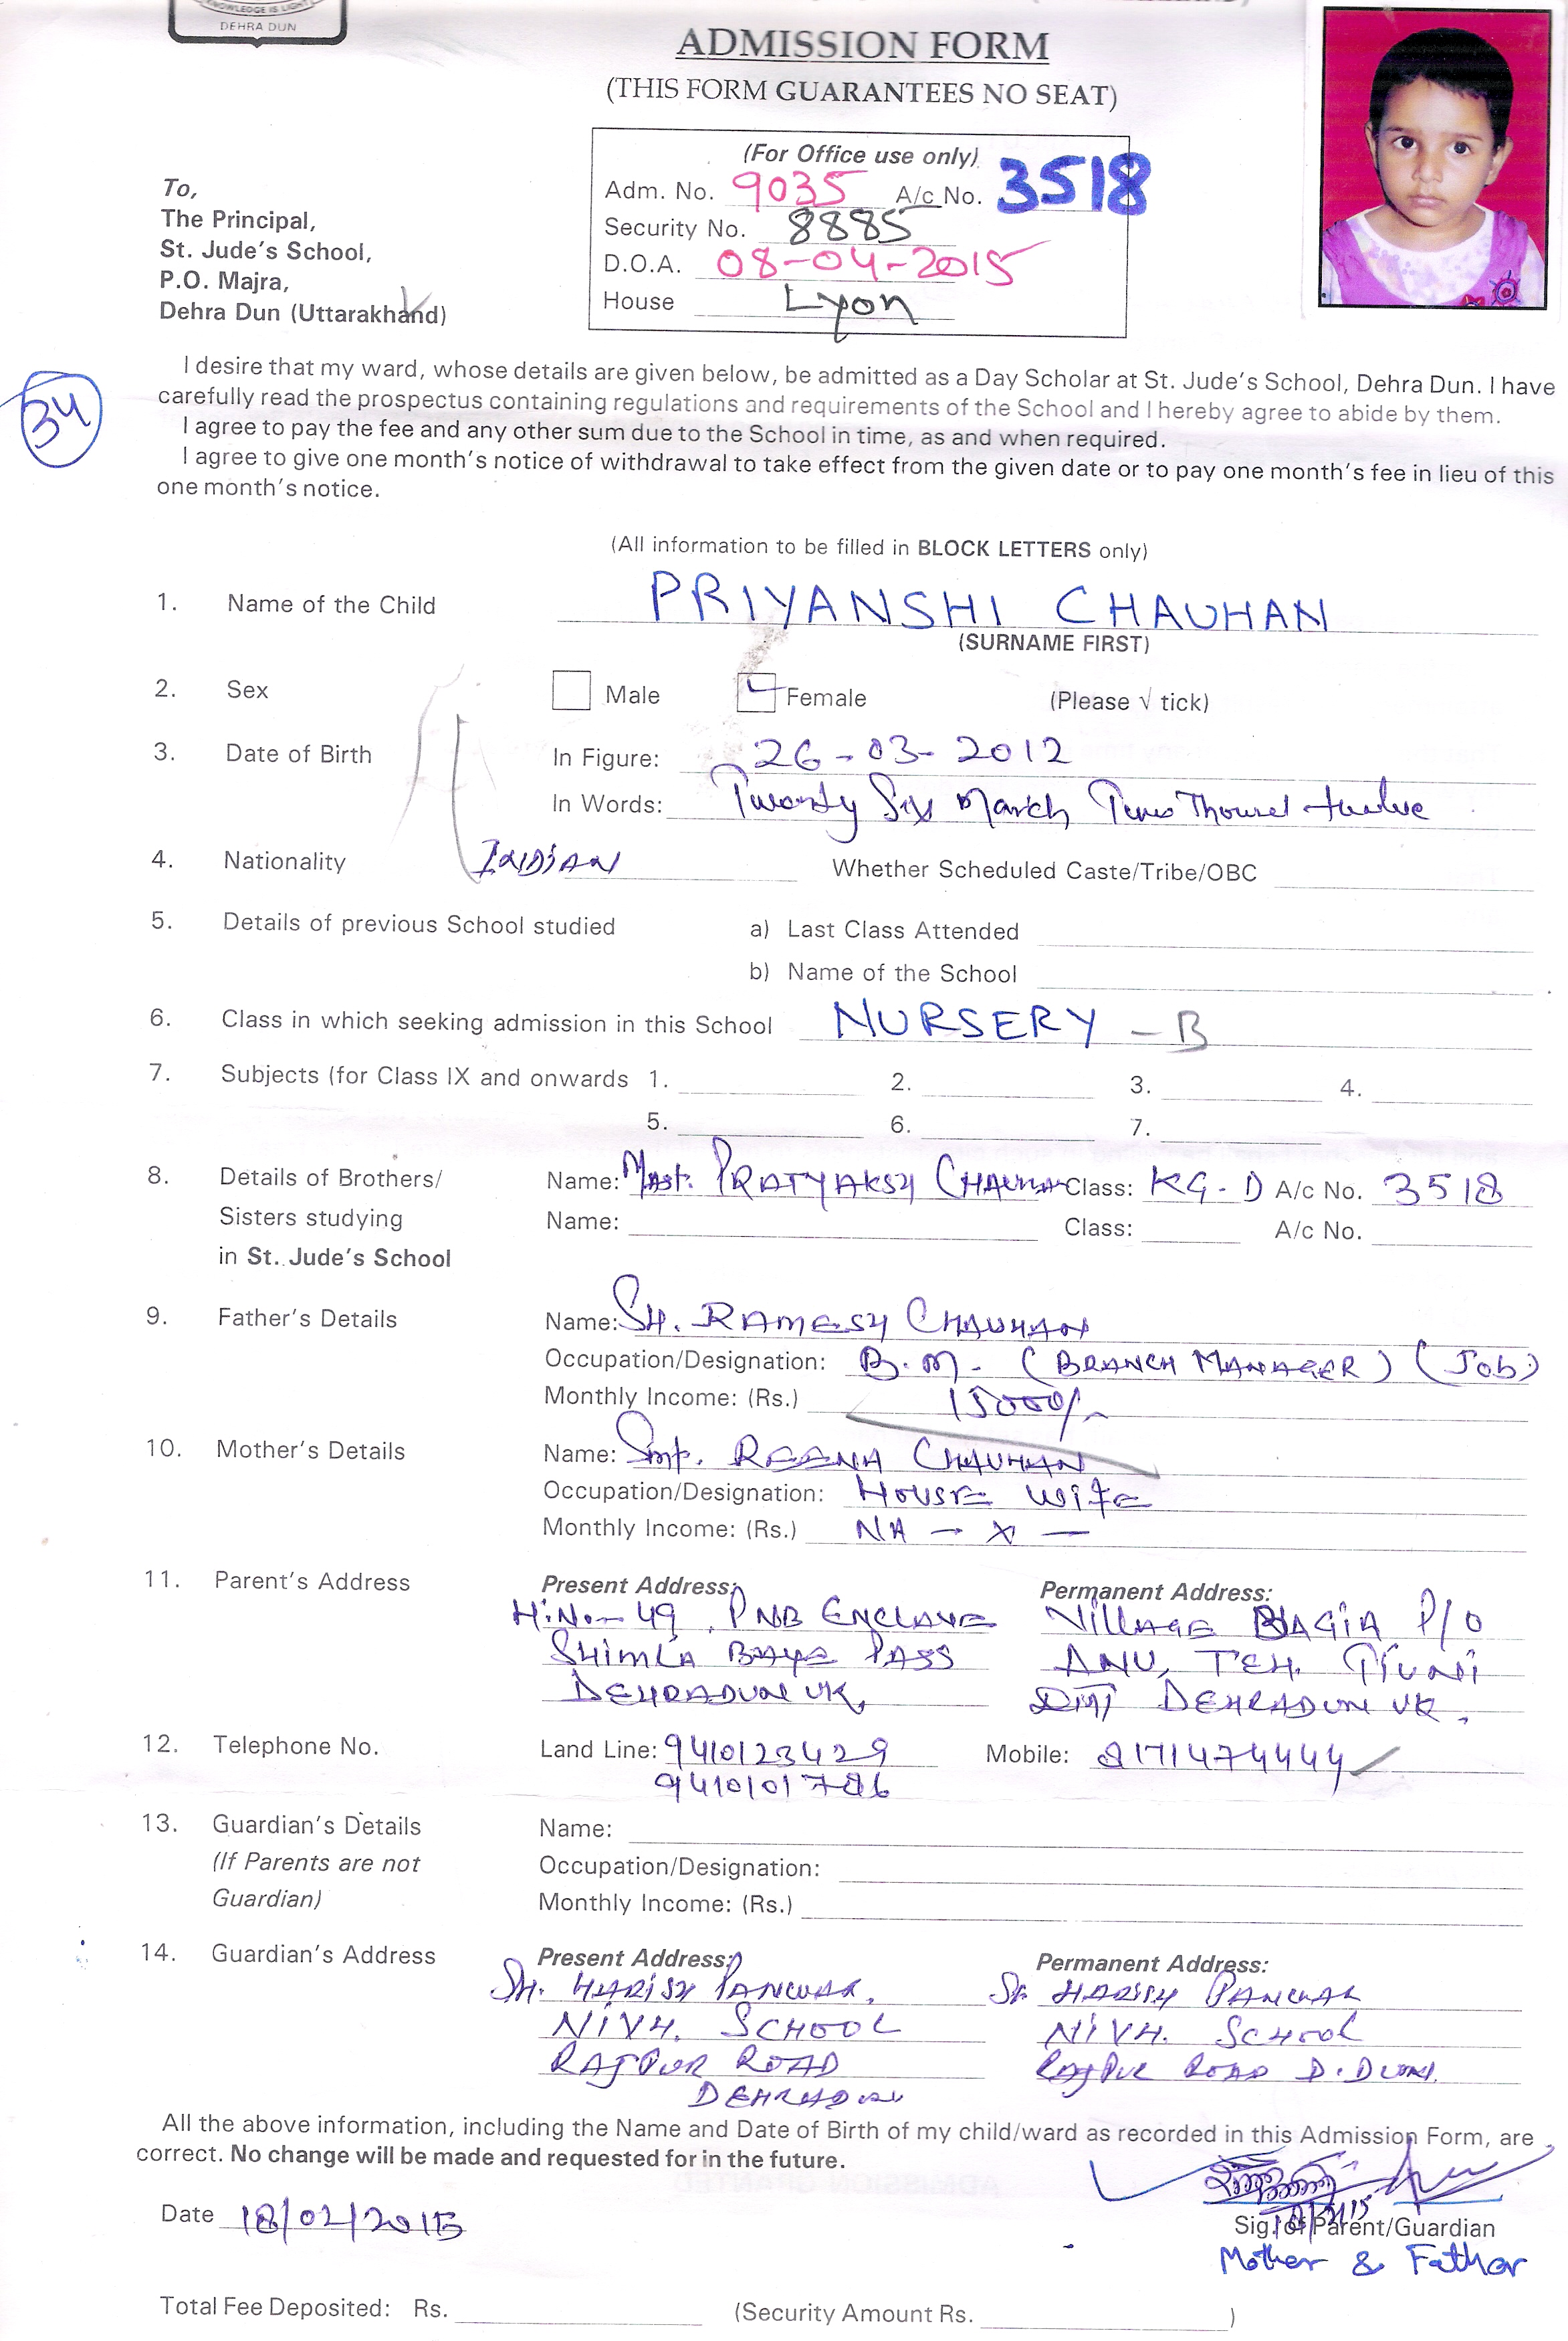 KNOWLEDGE IS LIGHT
DEHRA DUN
ADMISSION FORM
(THIS FORM GUARANTEES NO SEAT)
(For Office use only)
Adm. No. 9035 A/c No. 3518
Security No. 8885
D.O.A. 08-04-2015
House Lyon
To,
The Principal,
St. Jude's School,
P.O. Majra,
Dehra Dun (Uttarakhand)
34
I desire that my ward, whose details are given below, be admitted as a Day Scholar at St. Jude's School, Dehra Dun. I have
carefully read the prospectus containing regulations and requirements of the School and I hereby agree to abide by them.
I agree to pay the fee and any other sum due to the School in time, as and when required.
I agree to give one month's notice of withdrawal to take effect from the given date or to pay one month's fee in lieu of this
one month's notice.
(All information to be filled in BLOCK LETTERS only)
1. Name of the Child PRIYANSHI CHAUHAN
(SURNAME FIRST)
2. Sex Male Female (Please √ tick)
3. Date of Birth In Figure: 26-03-2012
In Words: Twenty Six March Two Thousand twelve
4. Nationality INDIAN Whether Scheduled Caste/Tribe/OBC
5. Details of previous School studied a) Last Class Attended
b) Name of the School
6. Class in which seeking admission in this School NURSERY - B
7. Subjects (for Class IX and onwards 1. 2. 3. 4.
5. 6. 7.
8. Details of Brothers/ Name: Mast. PRATYAKSH CHAUHAN Class: KG-D A/c No. 3518
Sisters studying Name: Class: A/c No.
in St. Jude's School
9. Father's Details Name: SH. RAMESH CHAUHAN
Occupation/Designation: B.M. (BRANCH MANAGER) (Job)
Monthly Income: (Rs.) 15000/-
10. Mother's Details Name: Smt. REENA CHAUHAN
Occupation/Designation: HOUSE WIFE
Monthly Income: (Rs.) NA - X -
11. Parent's Address Present Address: Permanent Address:
H.No-49, PNB ENCLAVE VILLAGE BAGIA P/O
SHIMLA BAYE PASS ANU, TEH. TIUNI
DEHRADUN UK, DIST DEHRADUN UK.
12. Telephone No. Land Line: 9410123429 Mobile: 8171474444
9410101786
13. Guardian's Details Name:
(If Parents are not Occupation/Designation:
Guardian) Monthly Income: (Rs.)
14. Guardian's Address Present Address: Permanent Address:
SH. HARISH PANWAR, SH HARISH PANWAR
NIVH. SCHOOL NIVH. SCHOOL
RAJPUR ROAD RAJPUR ROAD D.DUN.
DEHRADUN
All the above information, including the Name and Date of Birth of my child/ward as recorded in this Admission Form, are
correct. No change will be made and requested for in the future.
Date 18/02/2015
Sig. of Parent/Guardian
Mother & Father
Total Fee Deposited: Rs. (Security Amount Rs. )